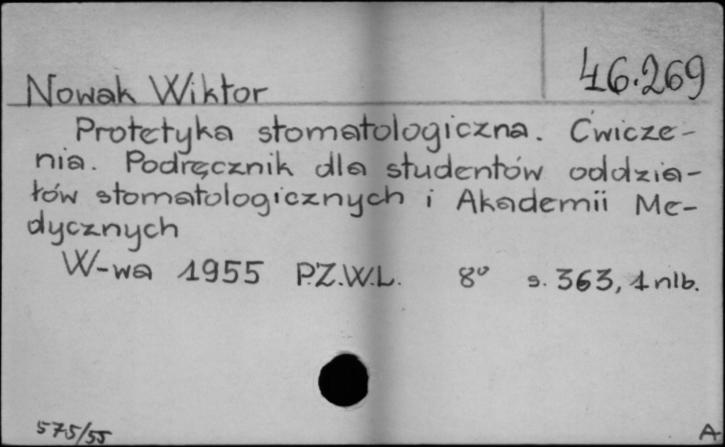 46.269
Nowak Wiktor
Protetyka stomatologiczna. Ćwicze-
nia. Podręcznik dla studentów oddzia-
łów stomatologicznych i Akademii Me-
dycznych
W-wa 1955 P.Z.W.L. 8° s. 363, 1 nlb.
575/55 A